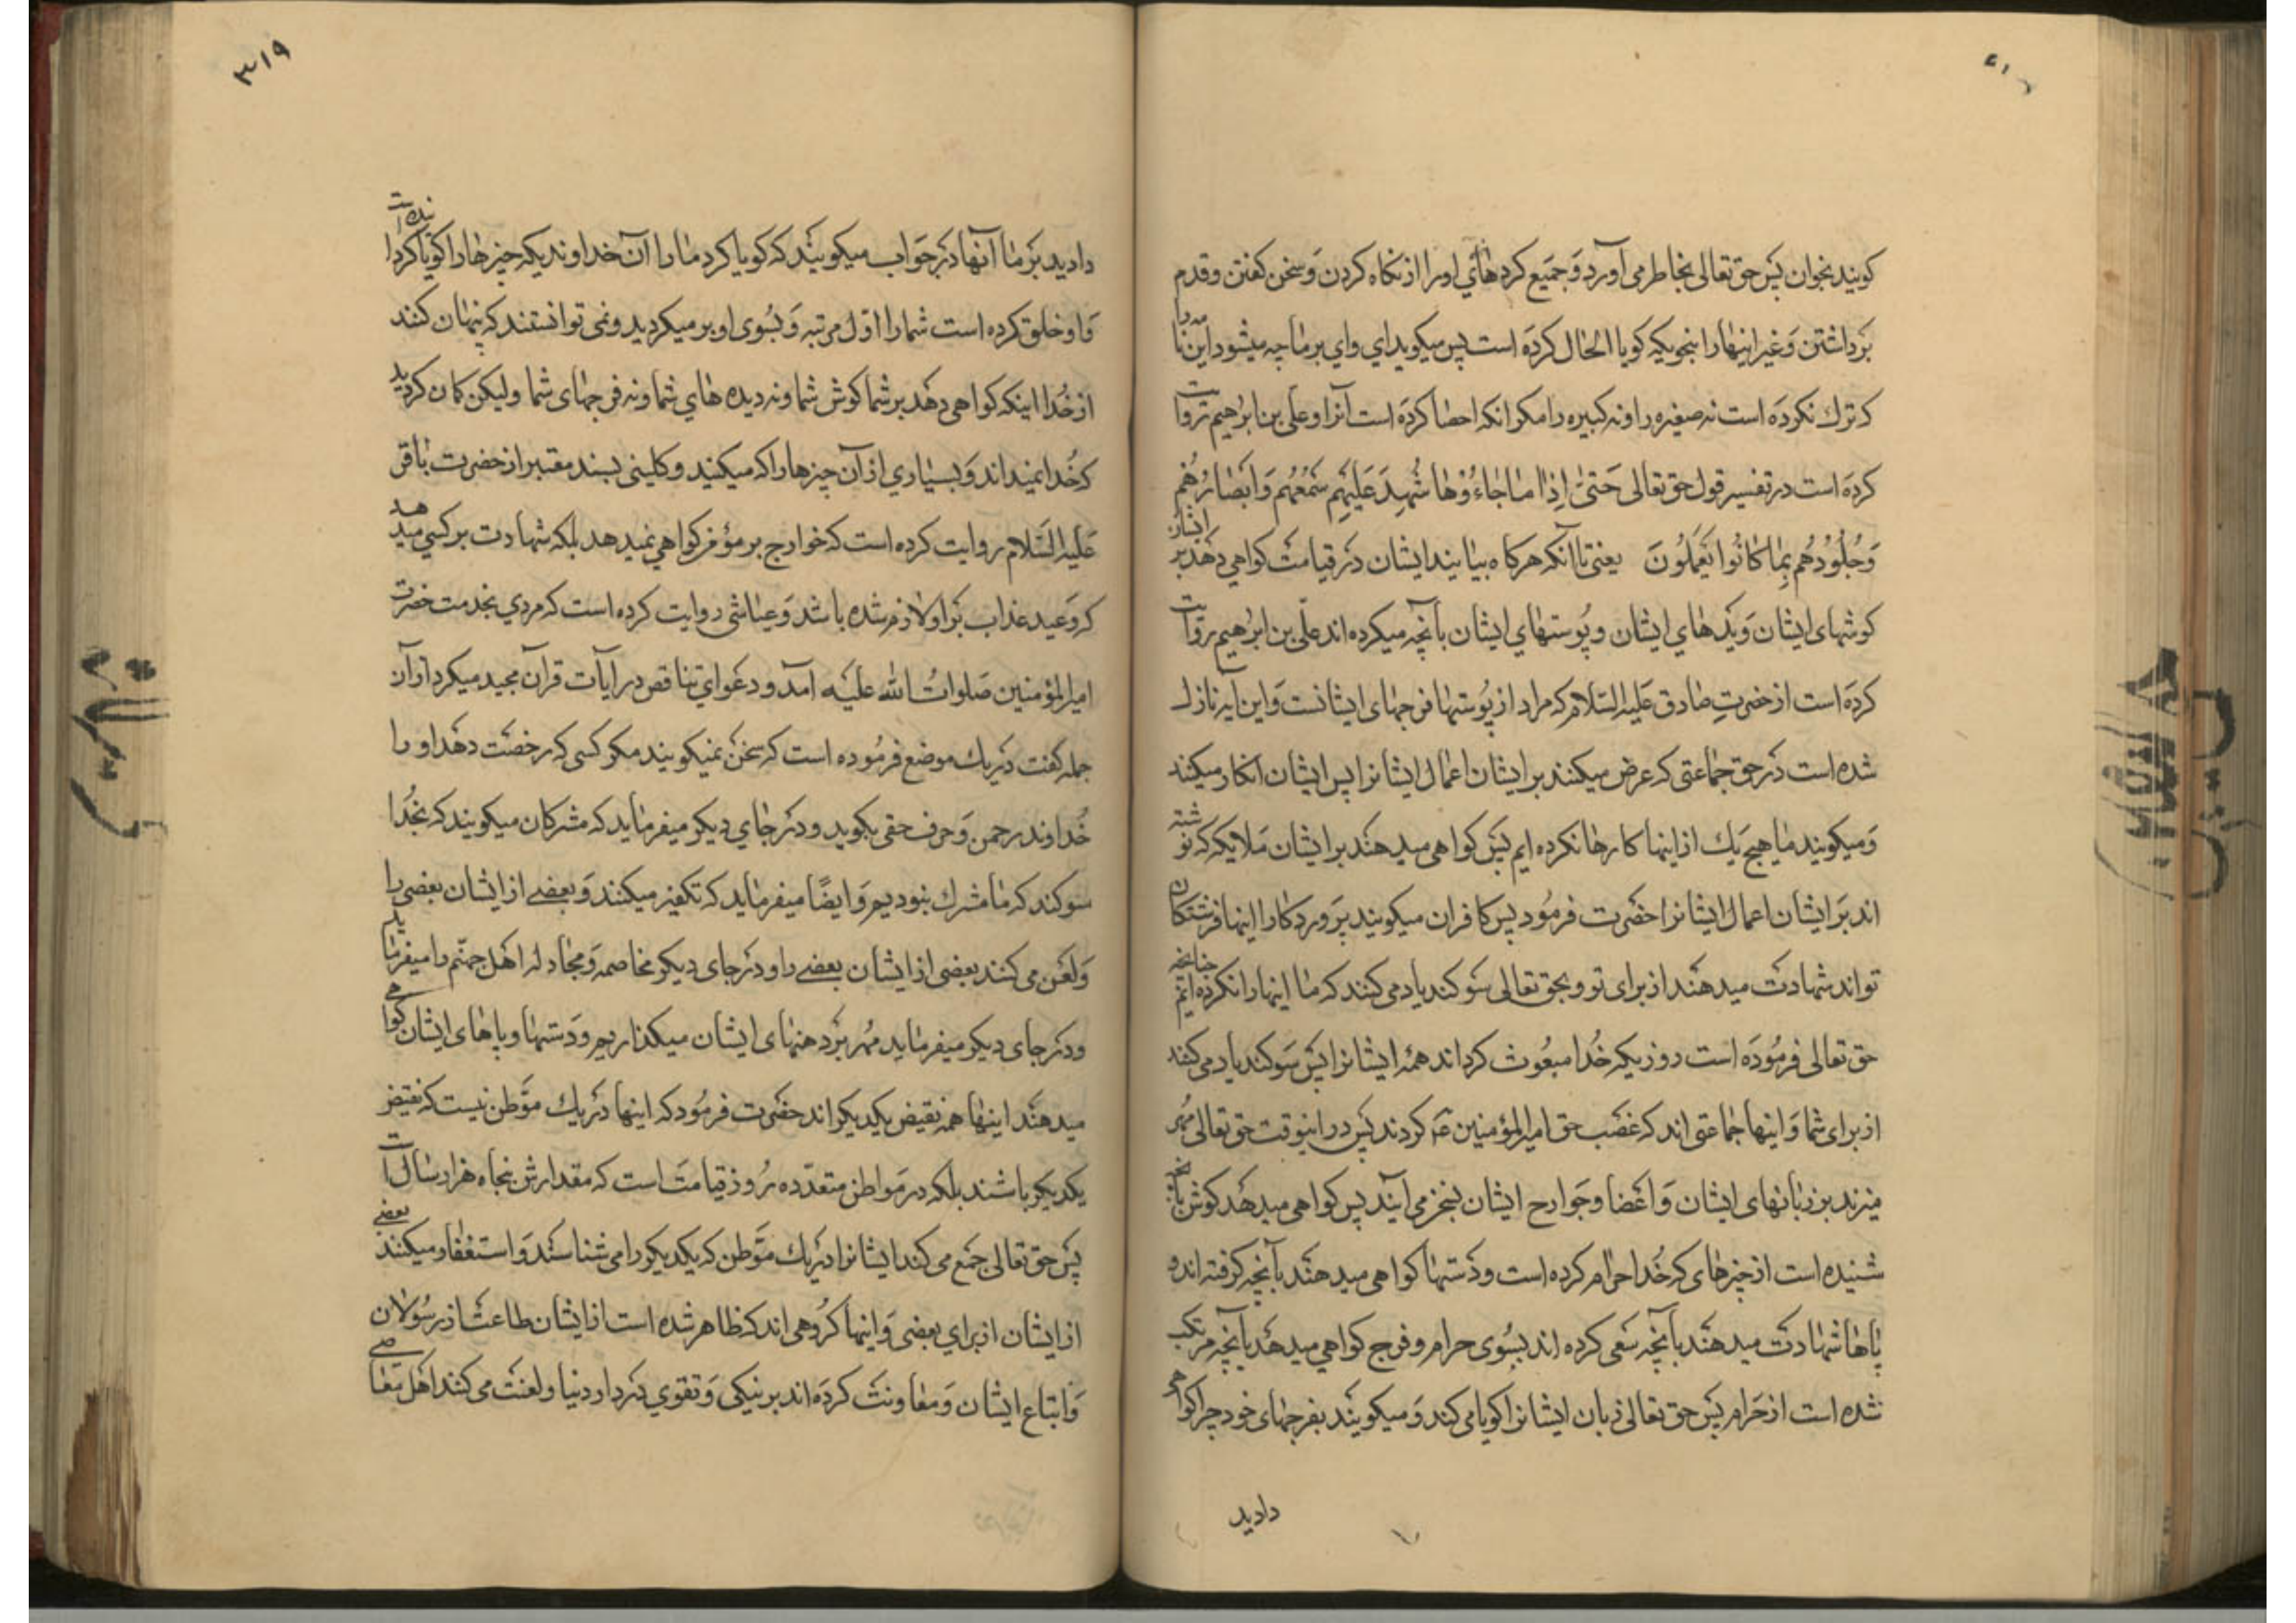 گویند بخوان پس حق تعالی بخاطر می آورد و جمیع کردهای او را از نگاه کردن و سخن گفتن و قدم
برداشتن و غیر اینها را بنحویکه گویا الحال کرده است پس میگوید ای وای بر ما چه میشود این نامه را
که ترک نکرده است نه صغیره را و نه کبیره را مگر آنکه احصا کرده است آنرا و علی بن ابرهیم روایت
کرده است در تفسیر قول حق تعالی حَتّیٰ اِذا ما جاءُوْها شُهِدَ عَلَیْهِم سَمْعُهُم وَ اَبْصارُهُم
وَ جُلُوْدُهُم بِما کانُوا یَعْمَلُونَ یعنی تا آنکه هرگاه بیایند ایشان در قیامت گواهی دهد بر ایشان
گوشهای ایشان و دیدهای ایشان و پوستهای ایشان بآنچه میکرده اند علی بن ابرهیم روایت
کرده است از حضرت صادق علیه السلام که مراد از پوستها فرجهای ایشانست و این آیه نازل
شده است در حق جماعتی که عرض میکنند بر ایشان اعمال ایشانرا پس ایشان انکار میکنند
و میگویند ما هیچ یک از اینها کارها نکرده ایم پس گواهی میدهند بر ایشان ملایکه که نوشته
اند بر ایشان اعمال ایشانرا حضرت فرمود پس کافران میگویند پروردگارا اینها فرشتگان
تواند شهادت میدهند از برای تو و بحق تعالی سوگند یاد می کنند که ما اینها را نکرده ایم چنانچه
حق تعالی فرموده است روزیکه خدا مبعوث گرداند همه ایشانرا پس سوگند یاد می کنند
از برای شما و اینها جماعتی اند که غصب حق امیرالمؤمنین ع کردند پس در اینوقت حق تعالی مهر
میزند بر زبانهای ایشان و اعضا و جوارح ایشان بسخن می آیند پس گواهی میدهد گوش بآنچه
شنیده است از چیزهای که خدا حرام کرده است و دستها گواهی میدهند بآنچه گرفته اند و
پاها شهادت میدهند بآنچه سعی کرده اند بسوی حرام و فرج گواهی میدهد بآنچه مرتکب
شده است از حرام پس حق تعالی زبان ایشانرا گویا می کند و میگویند بفرجهای خود چرا گواهی
دادید
۳۱۹
دادید بر ما آنها در جواب میگویند که گویا کرد ما را آن خداوندیکه چیزها را گویا گردانیده است
و او خلق کرده است شما را اوّل مرتبه و بسوی او برمیگردید و نمی توانستند که پنهان کنند
از خدا اینکه گواهی دهد بر شما گوش شما و نه دیده های شما و نه فرجهای شما ولیکن گمان کردید
که خدا نمیداند و بسیاری از آن چیزها را که میکنید و کلینی بسند معتبر از حضرت باقر
علیه السلام روایت کرده است که جوارح بر مؤمن گواهی نمیدهد بلکه شهادت بر کسی میدهد
که وعید عذاب بر او لازم شده باشد و عیاشی روایت کرده است که مردی بخدمت حضرت
امیرالمؤمنین صلوات الله علیه آمد و دعوای تناقص در آیات قرآن مجید میکرد از آن
جمله گفت در یک موضع فرموده است که سخن نمیگویند مگر کسی که رخصت دهد او را
خداوند رحمن و حرف حقی بگوید و در جای دیگر میفرماید که مشرکان میگویند که بخدا
سوگند که ما مشرک نبودیم و ایضًا میفرماید که تکفیر میکنند و بعضے از ایشان بعضی را
و لعن می کنند بعضی از ایشان بعضے را و در جای دیگر مخاصمه و مجادله اهل جهنّم را میفرماید
و در جای دیگر میفرماید مهر بر دهنهای ایشان میگذاریم و دستها و پاهای ایشان گواهی
میدهند اینها همه نقیض یکدیگر اند حضرت فرمود که اینها در یک موطن نیست که نقیض
یکدیگر باشند بلکه در مواطن متعدّده روز قیامت است که مقدارش پنجاه هزار سال است
پس حق تعالی جمع می کند ایشانرا در یک موطن که یکدیگر را می شناسند و استغفار میکنند بعضے
از ایشان از برای بعضی و اینها گروهی اند که ظاهر شده است از ایشان طاعت از رسولان
و اتباع ایشان و معاونت کرده اند بر نیکی و تقوی در دار دنیا و لعنت می کنند اهل معاصی